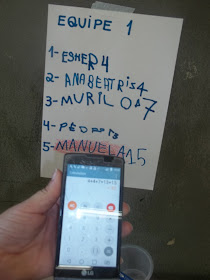 EQUIPE 1
1- ESHER 4
2- ANABEATRIS 4
3- MURILO 07
4- PEDRO 13
5- MANUELA 15
LG